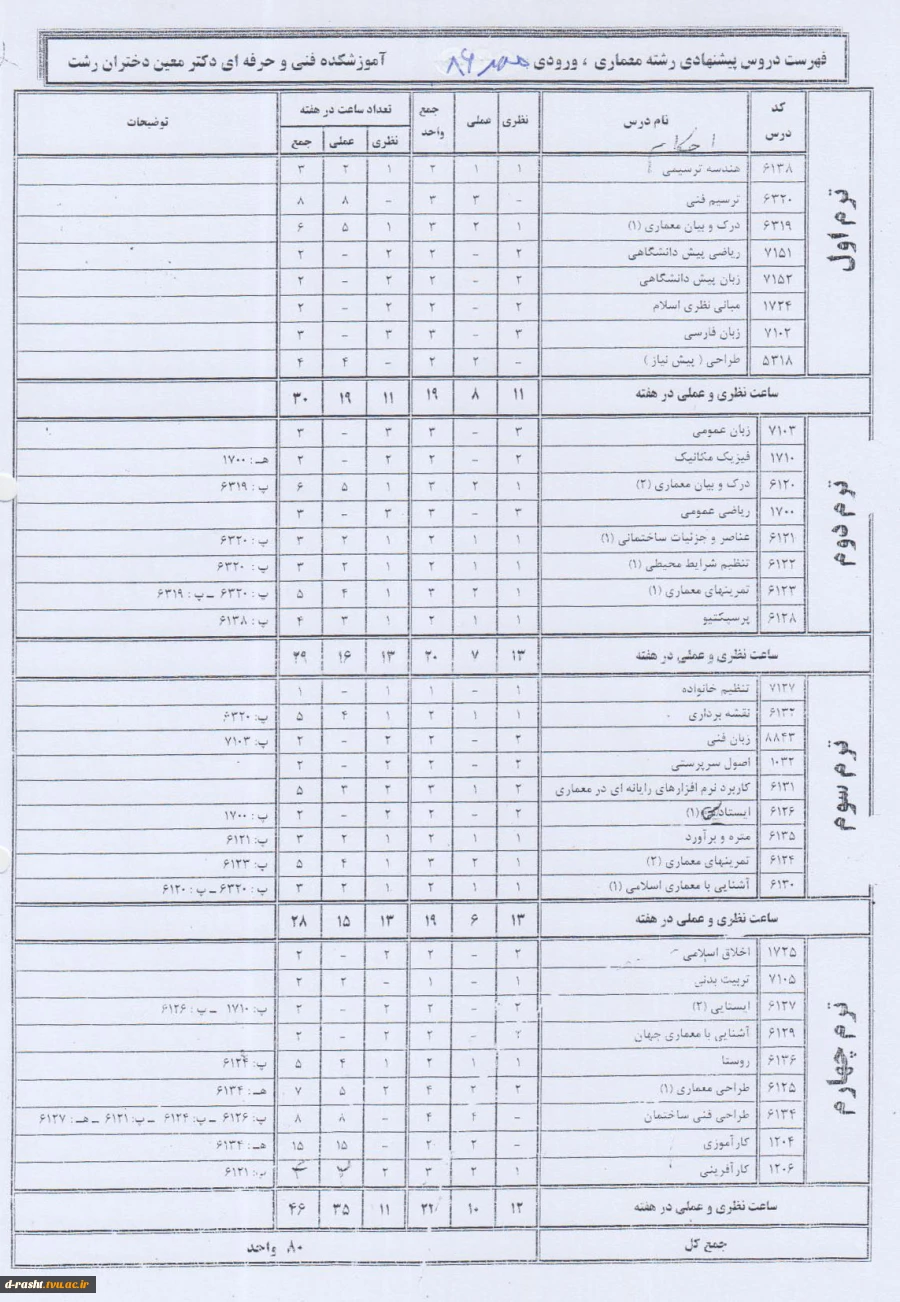 فهرست دروس پیشنهادی رشته معماری ، ورودی مهر ۸۶ آموزشکده فنی و حرفه ای دکتر معین دختران رشت
کد درس نام درس نظری عملی جمع واحد تعداد ساعت در هفته توضیحات
نظری عملی جمع
ترم اول
۶۱۳۸ هندسه ترسیمی ۱ ۱ ۲ ۱ ۲ ۳
۶۳۲۰ ترسیم فنی - ۳ ۳ - ۸ ۸
۶۳۱۹ درک و بیان معماری (۱) ۱ ۲ ۳ ۱ ۵ ۶
۷۱۵۱ ریاضی پیش دانشگاهی ۲ - ۲ ۲ - ۲
۷۱۵۲ زبان پیش دانشگاهی ۲ - ۲ ۲ - ۲
۱۷۲۴ مبانی نظری اسلام ۲ - ۲ ۲ - ۲
۷۱۰۲ زبان فارسی ۳ - ۳ ۳ - ۳
۵۳۱۸ طراحی ( پیش نیاز ) - ۲ ۲ - ۴ ۴
ساعت نظری و عملی در هفته ۱۱ ۸ ۱۹ ۱۱ ۱۹ ۳۰
ترم دوم
۷۱۰۳ زبان عمومی ۳ - ۳ ۳ - ۳
۱۷۱۰ فیزیک مکانیک ۲ - ۲ ۲ - ۲ هـ : ۱۷۰۰
۶۱۲۰ درک و بیان معماری (۲) ۱ ۲ ۳ ۱ ۵ ۶ پ : ۶۳۱۹
۱۷۰۰ ریاضی عمومی ۳ - ۳ ۳ - ۳
۶۱۲۱ عناصر و جزئیات ساختمانی (۱) ۱ ۱ ۲ ۱ ۲ ۳ پ : ۶۳۲۰
۶۱۲۲ تنظیم شرایط محیطی (۱) ۱ ۱ ۲ ۱ ۲ ۳ پ : ۶۳۲۰
۶۱۲۳ تمرینهای معماری (۱) ۱ ۲ ۳ ۱ ۴ ۵ پ : ۶۳۲۰ ـ پ : ۶۳۱۹
۶۱۲۸ پرسپکتیو ۱ ۱ ۲ ۱ ۳ ۴ پ : ۶۱۳۸
ساعت نظری و عملی در هفته ۱۳ ۷ ۲۰ ۱۳ ۱۶ ۲۹
ترم سوم
۷۱۲۷ تنظیم خانواده ۱ - ۱ ۱ - ۱
۶۱۳۲ نقشه برداری ۱ ۱ ۲ ۱ ۴ ۵ پ: ۶۳۲۰
۸۸۴۳ زبان فنی ۲ - ۲ ۲ - ۲ پ: ۷۱۰۳
۱۰۳۲ اصول سرپرستی ۲ - ۲ ۲ - ۲
۶۱۳۱ کاربرد نرم افزارهای رایانه ای در معماری ۲ ۱ ۳ ۲ ۳ ۵
۶۱۲۶ (۱) ۲ - ۲ ۲ - ۲ پ : ۱۷۰۰
۶۱۳۵ متره و برآورد ۱ ۱ ۲ ۱ ۲ ۳ پ: ۶۱۲۱
۶۱۲۴ تمرینهای معماری (۲) ۱ ۲ ۳ ۱ ۴ ۵ پ: ۶۱۲۳
۶۱۳۰ آشنایی با معماری اسلامی (۱) ۱ ۱ ۲ ۱ ۲ ۳ پ: ۶۳۲۰ ـ پ : ۶۱۲۰
ساعت نظری و عملی در هفته ۱۳ ۶ ۱۹ ۱۳ ۱۵ ۲۸
ترم چهارم
۱۷۲۵ اخلاق اسلامی ۲ - ۲ ۲ - ۲
۷۱۰۵ تربیت بدنی - ۱ ۱ - ۲ ۲
۶۱۲۷ ایستایی (۲) ۲ - ۲ ۲ - ۲ پ: ۱۷۱۰ ـ پ : ۶۱۲۶
۶۱۲۹ آشنایی با معماری جهان ۲ - ۲ ۲ - ۲
۶۱۳۶ روستا ۱ ۱ ۲ ۱ ۴ ۵ پ: ۶۱۲۴
۶۱۲۵ طراحی معماری (۱) ۲ ۲ ۴ ۲ ۵ ۷ هـ: ۶۱۳۴
۶۱۳۴ طراحی فنی ساختمان - ۴ ۴ - ۸ ۸ پ: ۶۱۲۶ ـ پ: ۶۱۲۴ ـ پ: ۶۱۲۱ ـ هـ: ۶۱۲۷
۱۲۰۴ کارآموزی - ۲ ۲ - ۱۵ ۱۵ هـ: ۶۱۳۴
۱۲۰۶ کارآفرینی ۱ ۲ ۳ ۲ پ: ۶۱۲۱
ساعت نظری و عملی در هفته ۱۲ ۱۰ ۲۲ ۱۱ ۳۵ ۴۶
جمع کل ۸۰ واحد
d-rasht.tvu.ac.ir